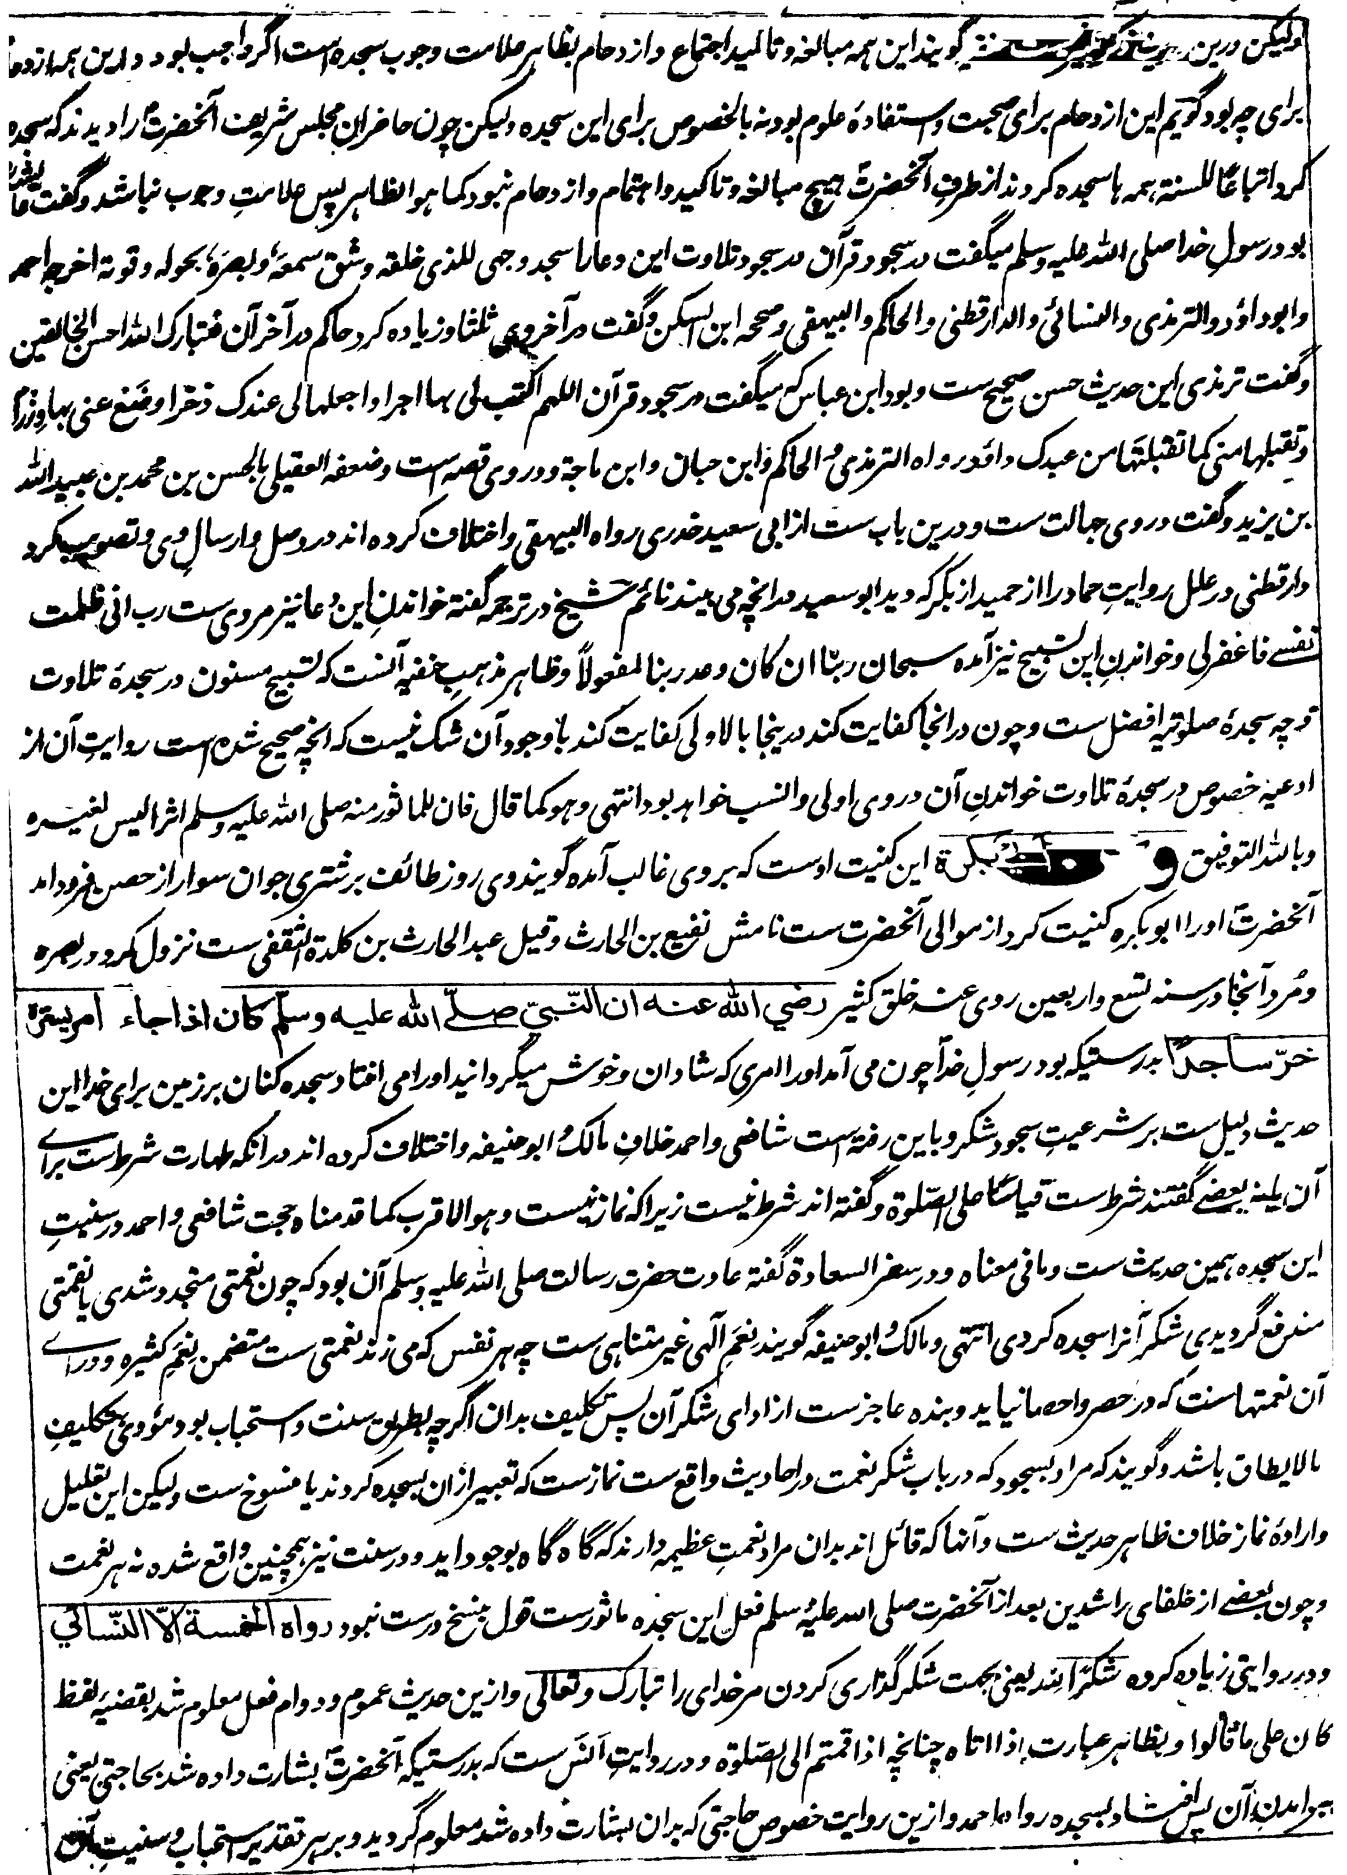 ولیکن درین گویند این همه مبالغه و تاکید اجتماع و ازدحام بظاهر علامت وجوب سجده است اگر واجب نبود و این همه ازدحام
برای چه بود گویم این ازدحام برای صحبت و استفادهٔ علوم بود نه بالخصوص برای این سجده ولیکن چون حاضران مجلس شریف آنحضرت را دیدند که سجده
کرد اتباعًا للسنة همه ها سجده کردند از طرف آنحضرت هیچ مبالغه و تاکید و اهتمام و ازدحام نبود کما هو الظاهر پس علامتِ وجوب نباشد و گفت عائشه
بود رسولِ خدا صلی الله علیه وسلم میگفت در سجود قرآن در سجود تلاوت این دعا را سجد وجهی للذی خلقه وشق سمعه وبصره بحوله وقوته اخرجه احمد
وابوداؤد والترمذی والنسائی والدارقطنی والحاکم والبیهقی وصححه ابن السکن وگفت در آخر وی ثلثا وزیاده کرد حاکم در آخر آن فتبارک الله احسن الخالقین
وگفت ترمذی این حدیث حسن صحیح ست وبود ابن عباس که میگفت در سجود قرآن اللهم اکتب لی بها اجرا واجعلها لی عندک ذخرا وضع عنی بها وزرا
وتقبلها منی کما تقبلتها من عبدک داؤد رواه الترمذی والحاکم وابن حبان وابن ماجة ودر وی قصه است وضعفه العقیلی بالحسن بن محمد بن عبیدالله
بن یزید وگفت در وی جهالت ست ودرین باب ست از ابی سعید خدری رواه البیهقی واختلاف کرده اند در وصل وارسالِ وی وتصویب کرد
دارقطنی در علل روایتِ حماد را از حمید از بکر که دید ابو سعید در انچه می بیند نائم شیخ در ترجمه گفته خواندنِ این دعا نیز مروی ست رب انی ظلمت
نفسے فاغفرلی وخواندنِ این تسبیح نیز آمده سبحان ربّنا ان کان وعد ربنا لمفعولاً وظاهر مذهبِ حنفیه آنست که تسبیح مسنون در سجدهٔ تلاوت
چه سجدهٔ صلوتیه افضل ست وچون در انجا کفایت کند درینجا بالاولی کفایت کند باوجود آن شک نیست که انچه صحیح شده است روایتِ آن از
ادعیه خصوص در سجدهٔ تلاوت خواندنِ آن در وی اولی وانسب خواهد بود انتهی وهو کما قال فان للماثور منه صلی الله علیه وسلم اثرا لیس لغیره
وبالله التوفیق و ابی بکرة این کنیت اوست که بروی غالب آمده گویند وی روز طائف بر شتری جوان سوار از حصن فرود آمد
آنحضرت اورا ابو بکره کنیت کرد از موالی آنحضرت ست نامش نفیع بن الحارث وقیل عبد الحارث بن کلدة الثقفی ست نزول کرد در بصره
ومُرد آنجا در سنه تسع واربعین روی عنه خلق کثیر رضي الله عنه ان النّبيّ صلّے الله علیه وسلّم کان اذا جاء امر یسرّه
خرّ ساجدًا بدرستیکه بود رسولِ خدا چون می آمد اورا امری که شادان وخوش میگردانید اورا می افتاد سجده کنان بر زمین برای خدا این
حدیث دلیل ست بر شرعیتِ سجود شکر وباین رفته است شافعی واحمد خلافِ مالک وابوحنیفه واختلاف کرده اند در انکه طهارت شرط ست براے
آن یا نه بعضے گفتند شرط ست قیاسًا علی الصّلوة وگفته اند شرط نیست زیرا که نماز نیست وهو الاقرب کما قدمناه حجت شافعی واحمد در سنیتِ
این سجده همین حدیث ست وما فی معناه ودر سفر السعادة گفته عادت حضرت رسالت صلی الله علیه وسلم آن بود که چون نعمتی متجدد شدی یا نقمتی
مندفع گردیدی شکر آنرا سجده کردی انتهی ومالک وابوحنیفه گویند نعَم الٰهی غیر متناهی ست چه هر نفس که می زند نعمتی ست متضمن نِعَم کثیره وورائے
آن نعمتهاست که در حصر واحصا نیاید وبنده عاجز ست از ادای شکر آن پس تکلیف بدان اگرچه بطریق سنت واستحباب بود مؤدی بتکلیفِ
مالایطاق باشد وگویند که مراد بسجود که در باب شکر نعمت در احادیث واقع ست نماز ست که تعبیر ازان بسجده کردند یا منسوخ ست ولیکن این تعلیل
وارادهٔ نماز خلاف ظاهر حدیث ست وآنها که قائل اند بدان مراد نعمتِ عظیمه دارند که گاه گاه بوجود آید ودر سنت نیز همچنین واقع شده نه هر نعمت
وچون بعضے از خلفای راشدین بعد از آنحضرت صلی الله علیه وسلم فعل این سجده ماثورست قول بنسخ درست نبود رواه الخمسة الّا النّسائي
ودر روایتی زیاده کرده شکرًا لله یعنی بجهت شکر گذاری کردن مر خدای را تبارک وتعالی وازین حدیث عموم ودوام فعل معلوم شد بقضیهٔ لفظ
کان علی ما قالوا وبظاهر عبارت اذا اتاه چنانچه اذا قمتم الی الصّلوة ودر روایتِ انس ست که بدرستیکه آنحضرت بشارت داده شد بحاجتی یعنی
ببر آمدنِ آن پس افتاد بسجده رواه احمد وازین روایت خصوص حاجتی که بدان بشارت داده شد معلوم گردید وبر هر تقدیر استحباب وسنیتِ آن